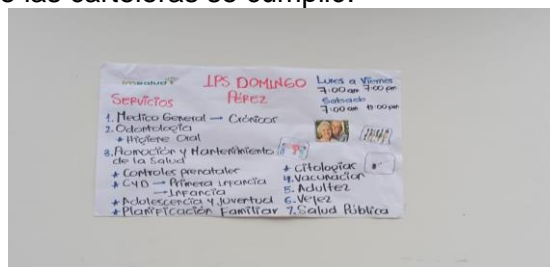 o las carteleras se cumplió.
imsalud
IPS DOMINGO
PÉREZ
Lunes a Viernes
7:00 am 7:00 pm
Sabado
7:00 am
Servicios
1. Medico General → Crónicos
2. Odontología
* Higiene Oral
3. Promoción y Mantenimiento
de la Salud
* Controles prenatales
* CYD → Primera infancia
→ Infancia
* Adolescencia y Juventud
* Planificación Familiar
* Citologías
4. Vacunación
5. Adultez
6. Vejez
7. Salud Pública